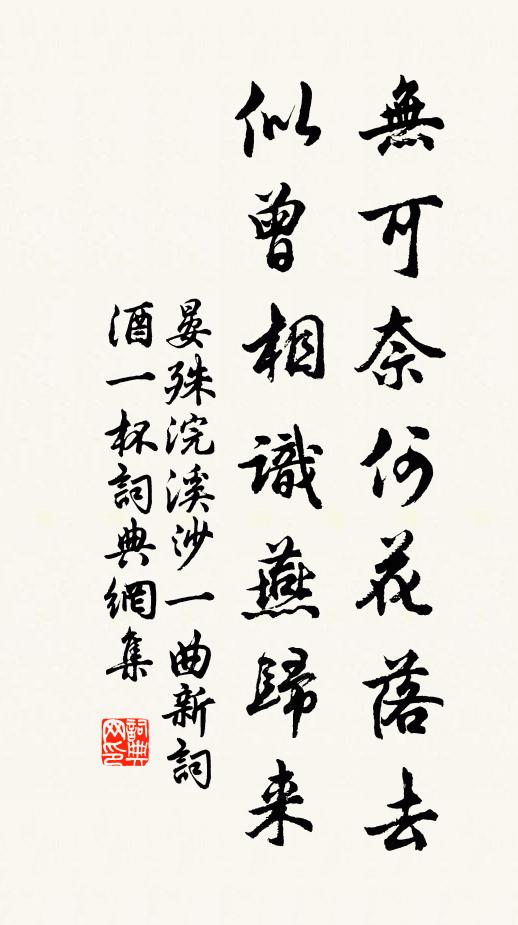 無可奈何花落去
似曾相識燕歸来
晏殊浣溪沙一曲新詞
酒一杯詞典網集
詞典
网印